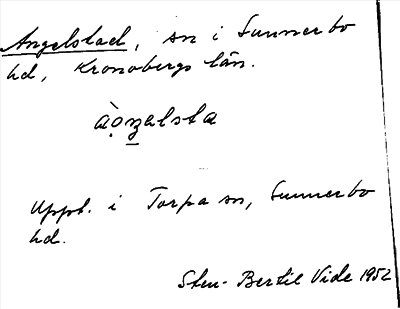 Angelstad, sn i Sunnerbo
hd, Kronobergs län.
àọn̠alsta
Uppt. i Torpa sn, Sunnerbo
hd.
Sten-Bertil Vide 1952